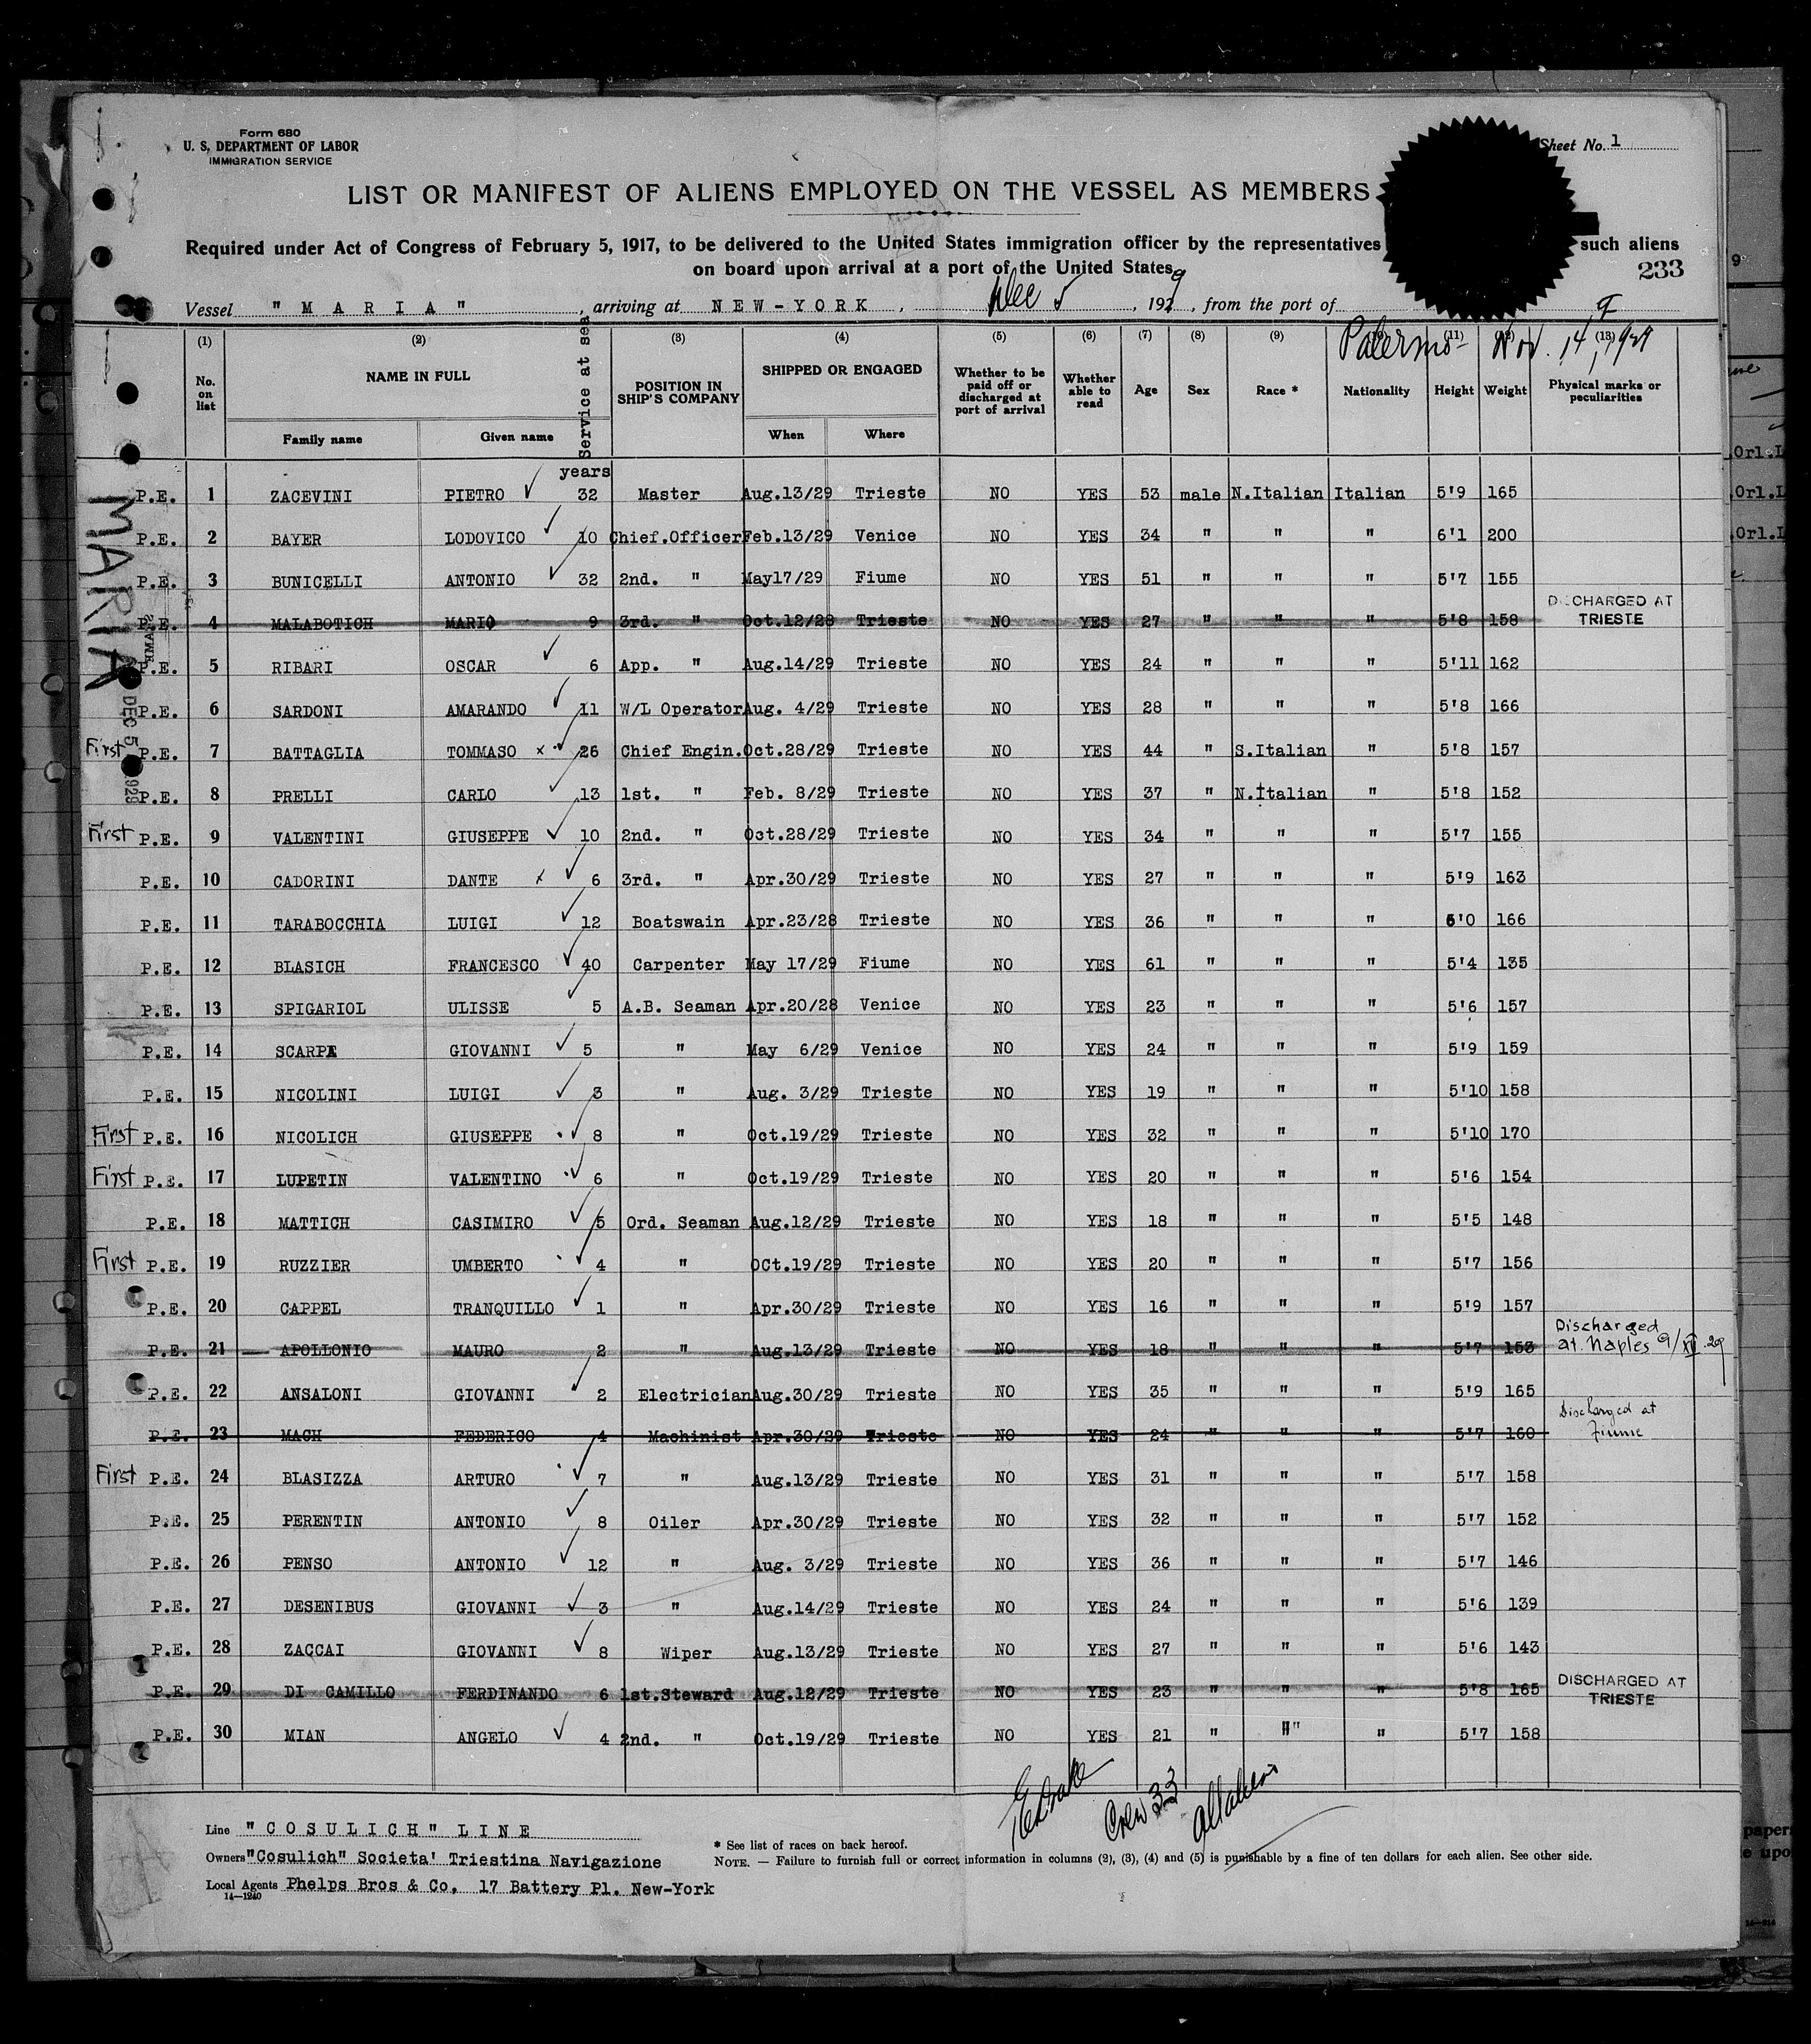 Form 680
U. S. DEPARTMENT OF LABOR
IMMIGRATION SERVICE
Sheet No. 1
LIST OR MANIFEST OF ALIENS EMPLOYED ON THE VESSEL AS MEMBERS
Required under Act of Congress of February 5, 1917, to be delivered to the United States immigration officer by the representatives such aliens
on board upon arrival at a port of the United States
233
Vessel "MARIA", arriving at NEW-YORK, Dec 5, 1929, from the port of
Palermo - Nov. 14, 1929
(1) (2) (3) (4) (5) (6) (7) (8) (9) (11) (13)
No. on list NAME IN FULL Service at sea POSITION IN SHIP'S COMPANY SHIPPED OR ENGAGED Whether to be paid off or discharged at port of arrival Whether able to read Age Sex Race * Nationality Height Weight Physical marks or peculiarities
Family name Given name When Where
years
P.E. 1 ZACEVINI PIETRO 32 Master Aug.13/29 Trieste NO YES 53 male N.Italian Italian 5'9 165
P.E. 2 BAYER LODOVICO 10 Chief.Officer Feb.13/29 Venice NO YES 34 " " " 6'1 200
P.E. 3 BUNICELLI ANTONIO 32 2nd. " May17/29 Fiume NO YES 51 " " " 5'7 155
P.E. 4 MALABOTICH MARIO 9 3rd. " Oct.12/28 Trieste NO YES 27 " " " 5'8 158 DISCHARGED AT TRIESTE
P.E. 5 RIBARI OSCAR 6 App. " Aug.14/29 Trieste NO YES 24 " " " 5'11 162
P.E. 6 SARDONI AMARANDO 11 W/L Operator Aug. 4/29 Trieste NO YES 28 " " " 5'8 166
First P.E. 7 BATTAGLIA TOMMASO x 26 Chief Engin. Oct.28/29 Trieste NO YES 44 " S.Italian " 5'8 157
P.E. 8 PRELLI CARLO 13 1st. " Feb. 8/29 Trieste NO YES 37 " N.Italian " 5'8 152
First P.E. 9 VALENTINI GIUSEPPE 10 2nd. " Oct.28/29 Trieste NO YES 34 " " " 5'7 155
P.E. 10 CADORINI DANTE x 6 3rd. " Apr.30/29 Trieste NO YES 27 " " " 5'9 163
P.E. 11 TARABOCCHIA LUIGI 12 Boatswain Apr.23/28 Trieste NO YES 36 " " " 6'0 166
P.E. 12 BLASICH FRANCESCO 40 Carpenter May 17/29 Fiume NO YES 61 " " " 5'4 135
P.E. 13 SPIGARIOL ULISSE 5 A.B. Seaman Apr.20/28 Venice NO YES 23 " " " 5'6 157
P.E. 14 SCARPA GIOVANNI 5 " May 6/29 Venice NO YES 24 " " " 5'9 159
P.E. 15 NICOLINI LUIGI 3 " Aug. 3/29 Trieste NO YES 19 " " " 5'10 158
First P.E. 16 NICOLICH GIUSEPPE 8 " Oct.19/29 Trieste NO YES 32 " " " 5'10 170
First P.E. 17 LUPETIN VALENTINO 6 " Oct.19/29 Trieste NO YES 20 " " " 5'6 154
P.E. 18 MATTICH CASIMIRO 5 Ord. Seaman Aug.12/29 Trieste NO YES 18 " " " 5'5 148
First P.E. 19 RUZZIER UMBERTO 4 " OCt.19/29 Trieste NO YES 20 " " " 5'7 156
P.E. 20 CAPPEL TRANQUILLO 1 " Apr.30/29 Trieste NO YES 16 " " " 5'9 157
P.E. 21 APOLLONIO MAURO 2 " Aug.13/29 Trieste NO YES 18 " " " 5'7 153 Discharged at Naples 9/XI.29
P.E. 22 ANSALONI GIOVANNI 2 Electrician Aug.30/29 Trieste NO YES 35 " " " 5'9 165
P.E. 23 MACH FEDERICO 4 Machinist Apr.30/29 Trieste NO YES 24 " " " 5'7 160 Discharged at Fiume
First P.E. 24 BLASIZZA ARTURO 7 " Aug.13/29 Trieste NO YES 31 " " " 5'7 158
P.E. 25 PERENTIN ANTONIO 8 Oiler Apr.30/29 Trieste NO YES 32 " " " 5'7 152
P.E. 26 PENSO ANTONIO 12 " Aug. 3/29 Trieste NO YES 36 " " " 5'7 146
P.E. 27 DESENIBUS GIOVANNI 3 " Aug.14/29 Trieste NO YES 24 " " " 5'6 139
P.E. 28 ZACCAI GIOVANNI 8 Wiper Aug.13/29 Trieste NO YES 27 " " " 5'6 143
P.E. 29 DI CAMILLO FERDINANDO 6 1st.Steward Aug.12/29 Trieste NO YES 23 " " " 5'8 165 DISCHARGED AT TRIESTE
P.E. 30 MIAN ANGELO 4 2nd. " Oct.19/29 Trieste NO YES 21 " " " 5'7 158
MARIA
DEC 5 1929
Crew 33
Line "COSULICH" LINE
Owners "Cosulich" Societa' Triestina Navigazione
Local Agents Phelps Bros & Co, 17 Battery Pl. New-York
14-1240
* See list of races on back hereof.
NOTE. — Failure to furnish full or correct information in columns (2), (3), (4) and (5) is punishable by a fine of ten dollars for each alien. See other side.